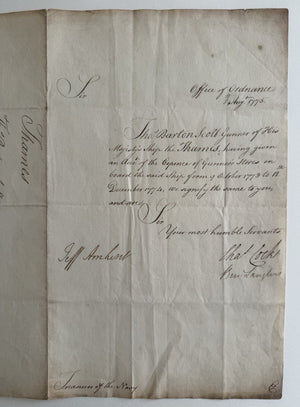 Office of Ordnance
Augt 1775.
Sir
Thos Barton Scott Gunner of His
Majesty's Ship the Thames, having given
an Acct of the Expence of Gunners Stores on
board the said Ship from 9 October 1773 to 12th
December 1774, we signify the same to you,
and are,
Sir
Your most humble Servants
Jeff Amherst
Chas Cocks
Ben Langlois
Treasurer of the Navy
Thames